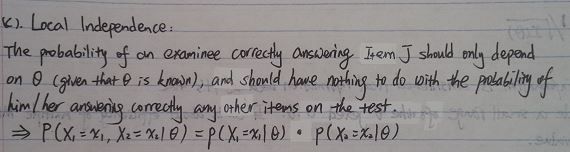 K). Local Independence:
The probability of an examinee correctly answering Item J should only depend
on θ (given that θ is known), and should have nothing to do with the probability of
him/her answering correctly any other items on the test.
⇒ P(X₁=x₁, X₂=x₂|θ) = p(X₁=x₁|θ) • p(X₂=x₂|θ)